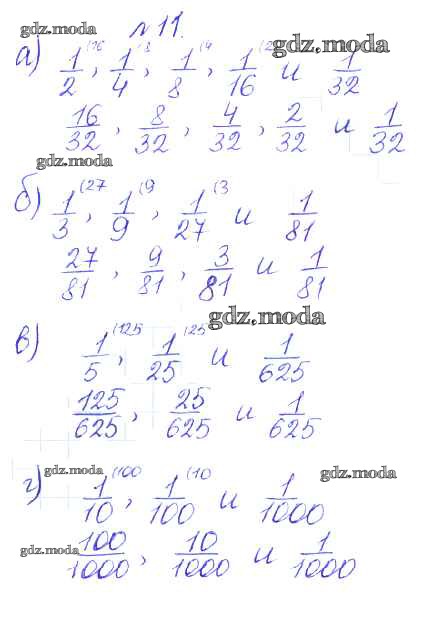 №11.
gdz.moda
а) 1/2 (16, 1/4 (8, 1/8 (4, 1/16 (2 и 1/32
16/32, 8/32, 4/32, 2/32 и 1/32
gdz.moda
б) 1/3 (27, 1/9 (9, 1/27 (3 и 1/81
27/81, 9/81, 3/81 и 1/81
gdz.moda
в) 1/5 (125, 1/25 (25 и 1/625
125/625, 25/625 и 1/625
gdz.moda
gdz.moda
г) 1/10 (100, 1/100 (10 и 1/1000
gdz.moda
100/1000, 10/1000 и 1/1000